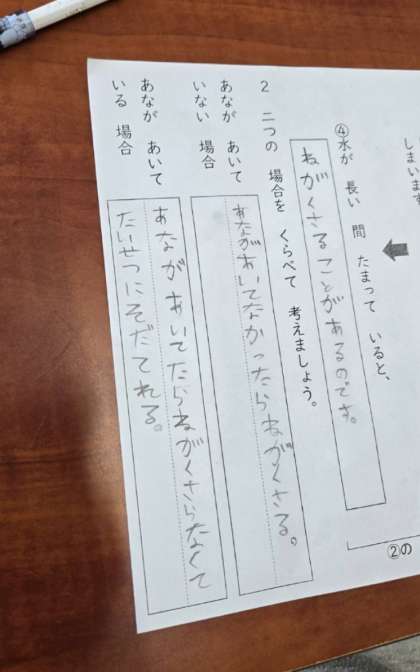 しまいます
④水が 長い 間 たまって いると、
ねがくさることがあるのです。
2 二つの 場合を くらべて 考えましょう。
あなが あいて
いない 場合
あながあいてなかったらねがくさる。
あなが あいて
いる 場合
あながあいてたらねがくさらなくて
たいせつにそだてれる。
②の